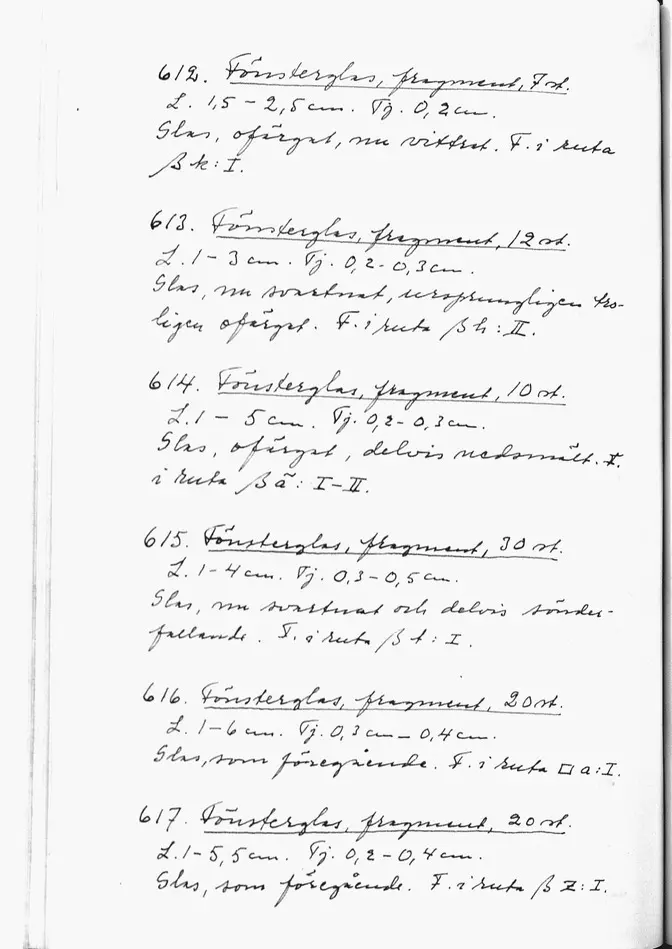 612. Fönsterglas, fragment, 7 st.
L. 1,5 - 2,5 cm. Tj. 0,2 cm.
Glas, ofärgat, nu vittrat. F. i ruta
β k: I.
613. Fönsterglas, fragment, 12 st.
L. 1 - 3 cm. Tj. 0,2 - 0,3 cm.
Glas, nu svartnat, ursprungligen tro-
ligen ofärgat. F. i ruta β h: II.
614. Fönsterglas, fragment, 10 st.
L. 1 - 5 cm. Tj. 0,2 - 0,3 cm.
Glas, ofärgat, delvis nedsmält. F.
i ruta β ä: I-II.
615. Fönsterglas, fragment, 30 st.
L. 1-4 cm. Tj. 0,3-0,5 cm.
Glas, nu svartnat och delvis sönder-
fallande. F. i ruta β t: I.
616. Fönsterglas, fragment, 20 st.
L. 1-6 cm. Tj. 0,3 cm - 0,4 cm.
Glas, som föregående. F. i ruta □ a: I.
617. Fönsterglas, fragment, 20 st.
L. 1-5,5 cm. Tj. 0,2-0,4 cm.
Glas, som föregående. F. i ruta β z: I.